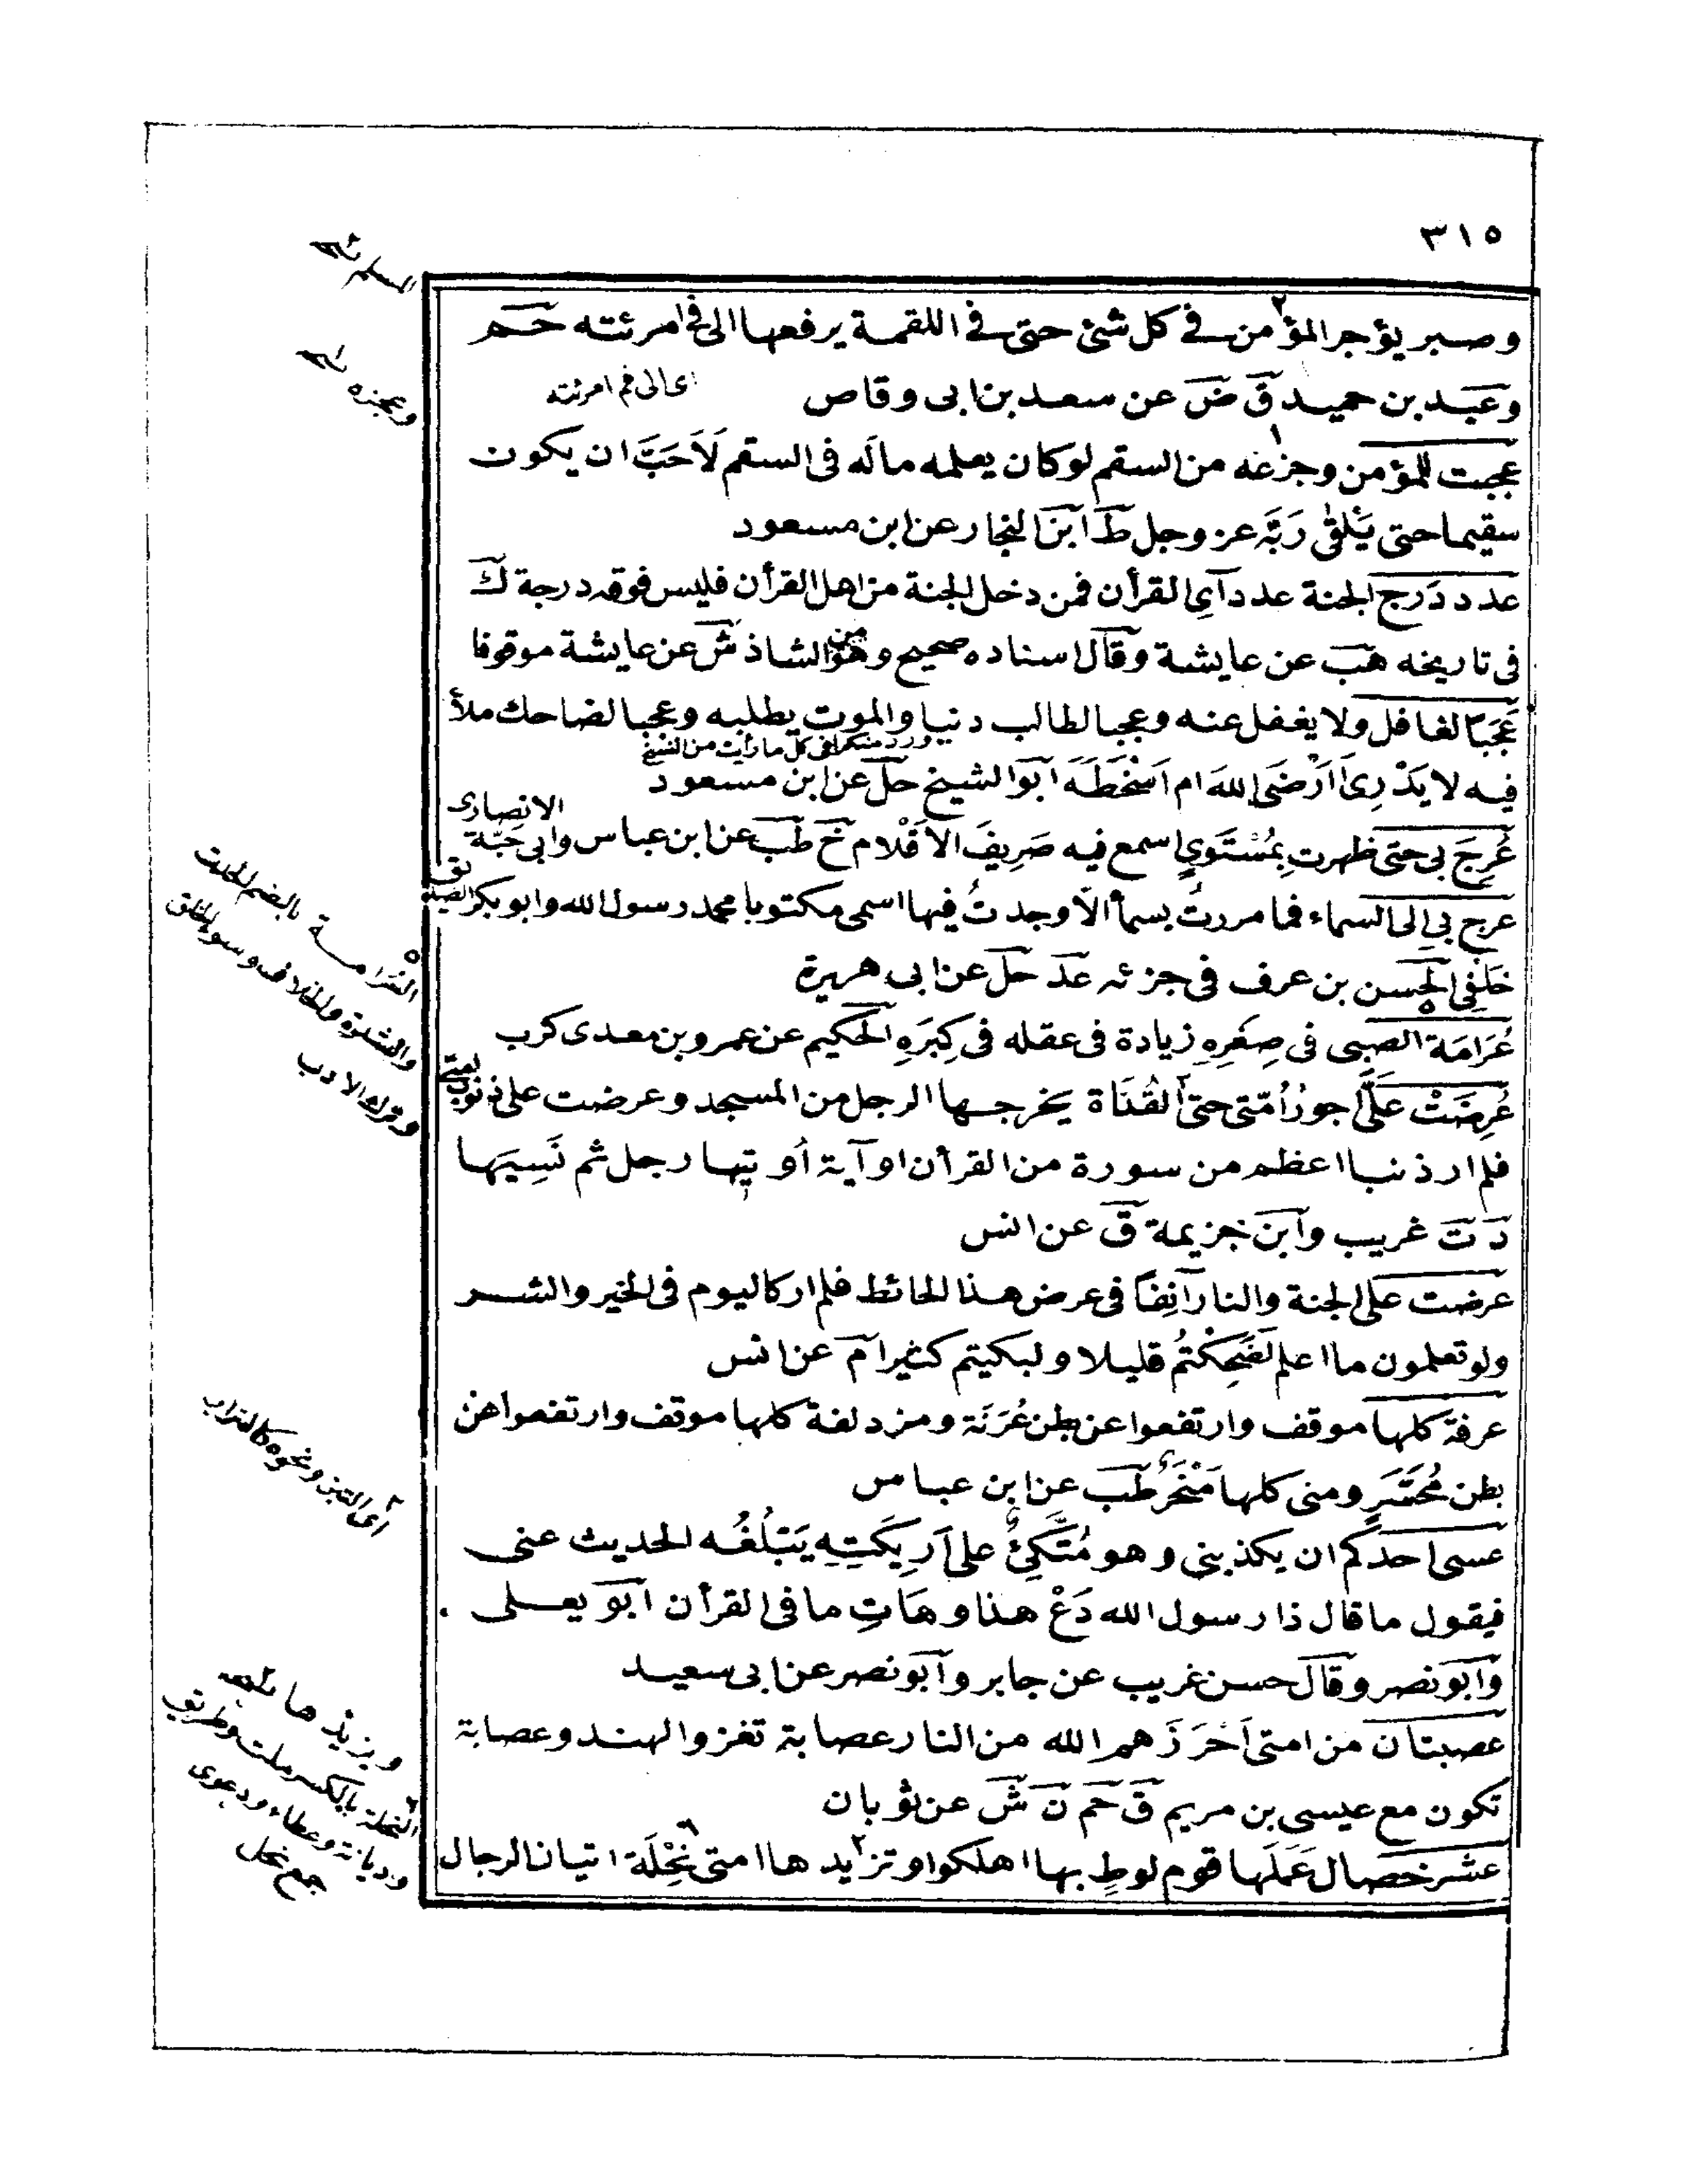 ٣١٥
وصبر يؤجر المؤمن في كل شئ حتى في اللقمة يرفعها الى في امرئته حم
وعبد بن حميد ق ض عن سعد بن ابى وقاص
اى الى فم امرئته
عجبت للمؤمن وجزعه من السقم لوكان يعلمه ماله فى السقم لَاَحَبَّ ان يكون
سقيما حتى يَلْقٰى رَبَّه عز وجل ط ابن النجار عن ابن مسعود
عدد دَرَج الجنة عدد آىِ القرأن فمن دخل الجنة من اهل القرأن فليس فوقه درجة ك
فى تاريخه هب عن عايشة وقال اسناده صحيح وهو من الشاذ ش عن عايشة موقوفا
عَجَبًا لغافل ولا يغفل عنه وعجبا لطالب دنيا والموت يطلبه وعجبا لضاحك ملأ
ورد منكرا فى كل ما رأيت من النسخ
فيه لا يَدْرِى أَاَرْضَى الله ام اَسْخَطَهَ ابو الشيخ حل عن ابن مسعود
عُرِجَ بى حتى ظهرت بِمُسْتَوًى اسمع فيه صَرِيفَ الاَقْلام خ طب عن ابن عباس وابى حَبَّة
الانصارى
عرج بى الى السماء فما مررتُ بسمأ الّا وجدتُ فيها اسمى مكتوبا محمد رسول الله وابو بكر الصديق
خَلْفِى الحسن بن عرف فى جزئه عد حل عن ابى هريرة
عُرَامَة الصبى فى صِغَرِهِ زيادة فى عقله فى كِبَرِهِ الحكيم عن عمرو بن معدى كرب
عُرِضَتْ علىَّ اجور اُمّتى حتى القُذَاة يخرجها الرجل من المسجد وعرضت على ذنوب امتى
فلم ار ذنبا اعظم من سورة من القرأن او آية أوتيها رجل ثم نَسِيَها
د ت غريب وابن خزيمة ق عن انس
عرضت على الجنة والنار آنِفًا فى عرض هذا الحائط فلم ار كاليوم فى الخير والشر
ولو تعلمون ما اعلم لَضَحِكْتُمْ قليلا ولبكيتم كثيرا م عن انس
عرفة كلها موقف وارتفعوا عن بطن عُرَنَة ومزدلفة كلها موقف وارتفعوا عن
بطن مُحَسِّرٍ ومنى كلها مَنْحَرٌ طب عن ابن عباس
عسى احدكم ان يكذبنى وهو مُتَّكِئٌ على اَرِيكَتِهِ يَبْلُغُه الحديث عنى
فيقول ما قال ذا رسول الله دَعْ هذا وهَاتِ ما فى القرأن ابو يعلى
وابو نصر وقال حسن غريب عن جابر وابو نصر عن ابى سعيد
عصبتان من امتى اَحْرَزَهم الله من النار عصابة تغزو الهند وعصابة
تكون مع عيسى بن مريم ق حم ن ش عن ثوبان
عشر خصال عَمِلَها قوم لوطٍ بها اهلكوا وتزايدها امتى نِحْلَة اتيان الرجال
المسلم نسخه
وعجزه نسخه
العُرامة بالضم الحدت
والشدة والخلاف وسوء الخلق
وترك الادب
اى التبن ونحوه كالتراب
ويزيدها نسخه
النحلة بالكسر ملت وطريق
وديانة وعطاء ودعوى
جمع نحل